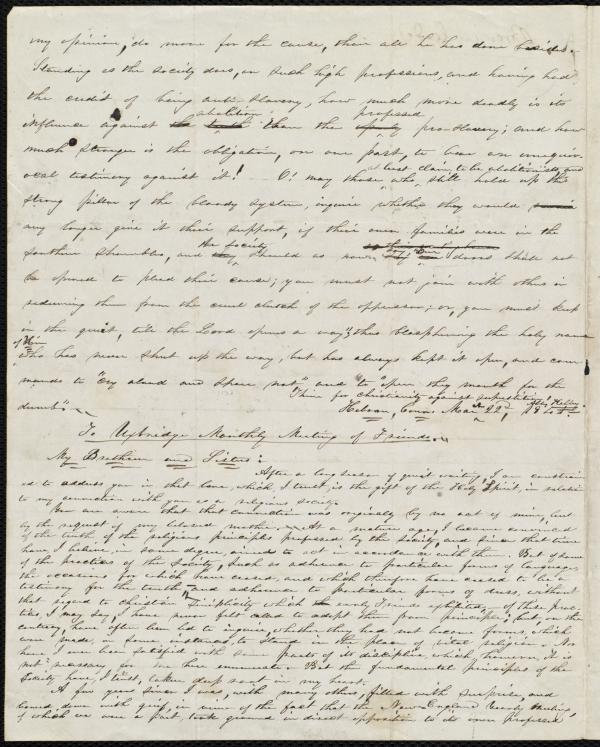 my opinion, do more for the cause, than all he has done besides.
Standing as the society does, on such high professions, and having had
the credit of being anti-slavery, how much more deadly is its
abolition professed
influence against the truth than the openly pro-slavery; and how
much stronger is the obligation, on our part, to bear an unequiv-
ocal testimony against it! O! may those who still hold up this
at least claim to be abolitionists, and
strong pillar of the bloody system, inquire whether they would
any longer give it their support, if their own families were in the
southern shambles, and they should as now say, "Our doors shall not
the society
be opened to plead their cause; you must not join with others in
redeeming them from the cruel clutch of the oppressor; or, you must keep
in the quiet, till the Lord opens a way"; thus blaspheming the holy name
of Him
who has never shut up the way, but has always kept it open, and com-
mands to "cry aloud and spare not," and "to open thy mouth for the
dumb."
Thine for christianity against superstition,
Abby Kelley.
Hebron, Conn. Mar. 22d, 1841.
To Uxbridge Monthly Meeting of Friends.
My Brethren and Sisters:
After a long season of quiet waiting, I am constrain-
ed to address you in that love, which, I trust, is the gift of the Holy Spirit, in relation
to my connection with you as a religious society.
You are aware that that connection was originally by no act of mine, but
by the request of my beloved mother. At a mature age, I became convinced
of the truth of the religious principles professed by the society, and since that time
have, I believe, in some degree, aimed to act in accordance with them. But of some
of the practices of the Society, such as adherence to particular forms of language,
the occasions for which have ceased, and which therefore have ceased to be a
testimony for the truth and adherence to particular forms of dress, without
that regard to christian simplicity which early Friends exhibited, of these prac-
tices, I may say, I have never felt called to adopt them from principle; but, on the
contrary, have often been led to inquire, whether they had not become forms, which
were made, in some instances, to stand in the place of vital religion. Nor
have I ever been satisfied with some parts of its discipline, which, however, it is
not necessary for me here enumerate. But the fundamental principles of the
Society have, I trust, taken deep root in my heart.
A few years since I was, with many others, filled with surprise, and
bowed down with grief, in view of the fact that the New England Yearly Meeting,
of which we were a part, took ground in direct opposition to its own professed